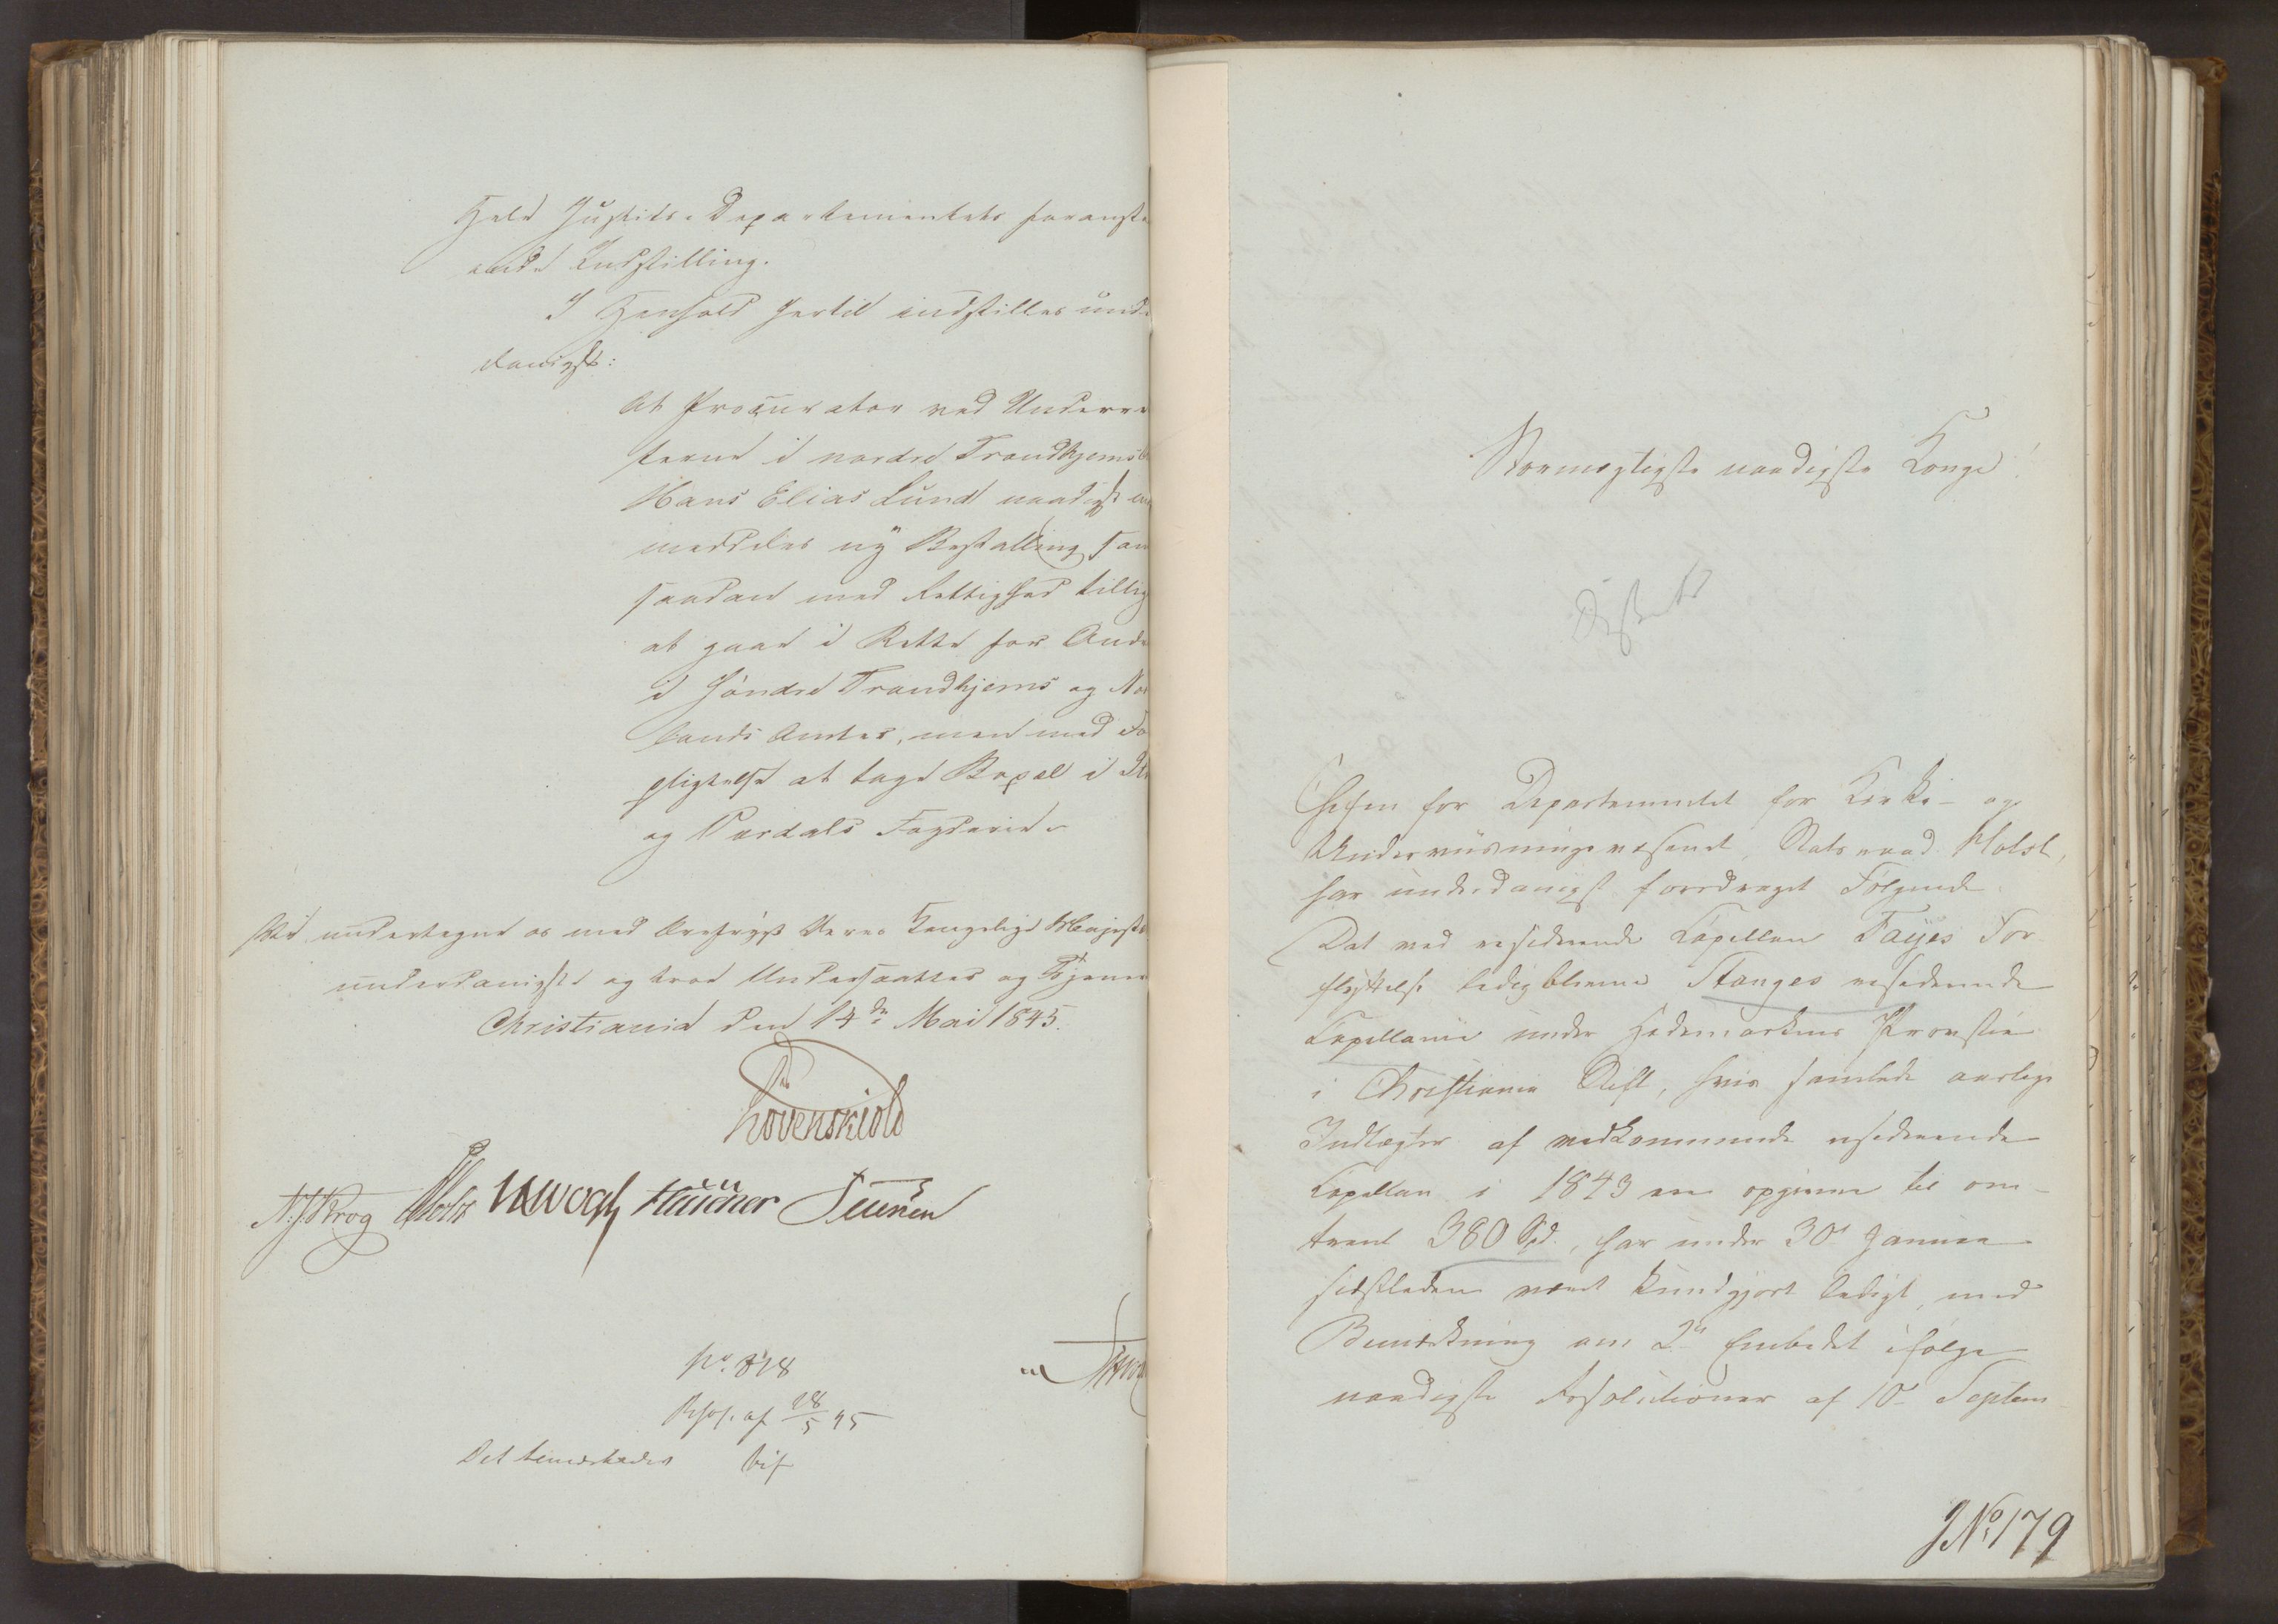 Hele Justits-Departementets foranstaa
ende Indstilling.
I Henhold hertil indstilles unde
danigst:
At Procurator ved Underre
terne i nordre Trondhjems
Hans Elias Lund naadigst
meddeles ny Bestalling som
saadan med Rettighed tillige
at gaae i Rette for Andre
i søndre Trondhjems og No
lands Amter, men med Fo
pligtelse at tage Bopæl i
og Værdals Fogderie.
undertegne os med Ærefrygt Deres Kongelige Majest
underdanigste og troe Undersaatter og Tjenere
Christiania den 14de Mai 1845.
Løvenskiold
N. J. Krog Holst Vogt
No. 818
Resol. af 28/5 45
Det bemærkedes bif
Stormægtigste naadigste Konge!
Chefen for Departementet for Kirke- og
Underviisningsvæsenet, Statsraad Holst,
har underdanigst foredraget Følgende:
Det ved residerende Capellan Fayes For-
flyttelse ledigblevne Stanges residerende
Capellanie under Hedemarkens Provstie
i Christiania Stift, hvis samlede aarlige
Indtægter af vedkommende residerende
Capellan i 1843 ere opgivne til om-
trent 380 Spd., har under 30te Januar
sidstleden været kundgjort ledigt, med
Bemærkning om Embedet ifølge
naadigste Resolutioner af 10de Septem
J No 179